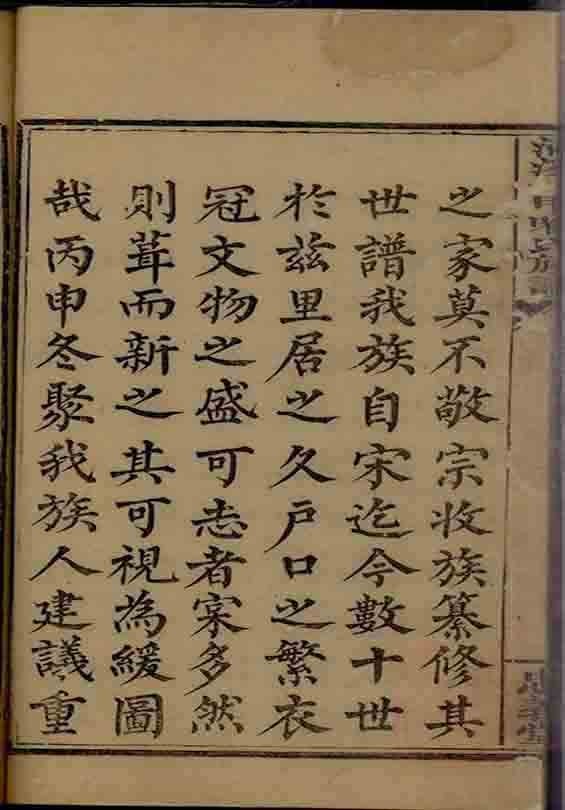 之家莫不敬宗收族纂修其
世譜我族自宋迄今數十世
於茲里居之久戶口之繁衣
冠文物之盛可志者宲多然
則葺而新之其可視為緩圖
哉丙申冬聚我族人建議重